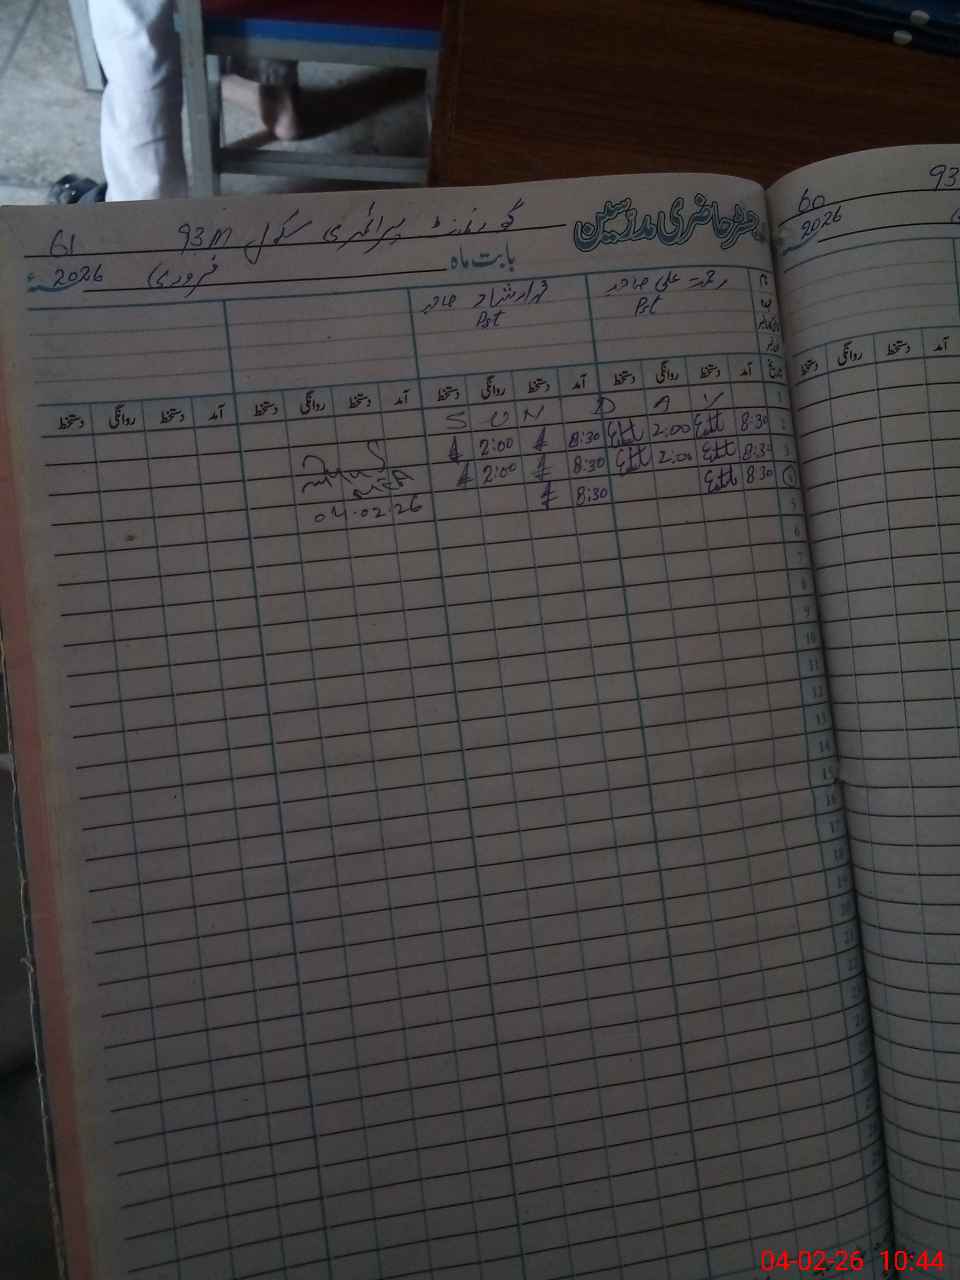 رجسٹر حاضری مدرسین
گورنمنٹ پرائمری سکول 93M 61
بابت ماہ فروری 2026ء
رحمت علی صاحب ارشاد صاحب
Pst Pst
تاریخ آمد دستخط روانگی دستخط آمد دستخط روانگی دستخط آمد دستخط روانگی دستخط آمد دستخط روانگی دستخط
1 S U N D A Y
2 8:30 2:00 8:30 2:00
3 8:30 2:00 8:30 2:00
4 8:30 8:30
04.02.26
5
6
7
8
9
10
11
12
13
14
15
16
17
18
19
93
60
2026
آمد دستخط روانگی دستخط
04-02-26 10:44